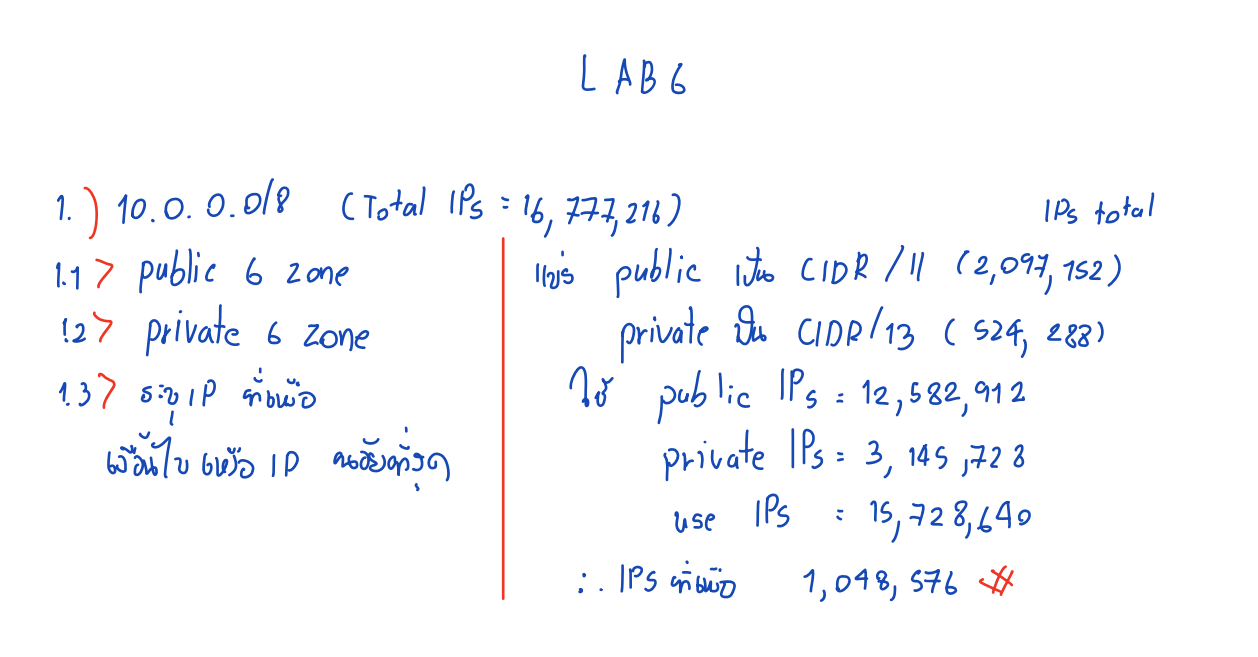 LAB 6
1.) 10.0.0.0/8 (Total IPs = 16,777,216)
1.1> public 6 zone
1.2> private 6 zone
1.3> ระบุ IP ที่เหลือ
เงื่อนไข เหลือ IP น้อยที่สุด
IPs total
แบ่ง public เป็น CIDR /11 (2,097,152)
private เป็น CIDR /13 (524,288)
ใช้ public IPs = 12,582,912
private IPs = 3,145,728
use IPs = 15,728,640
∴ IPs ที่เหลือ 1,048,576 #